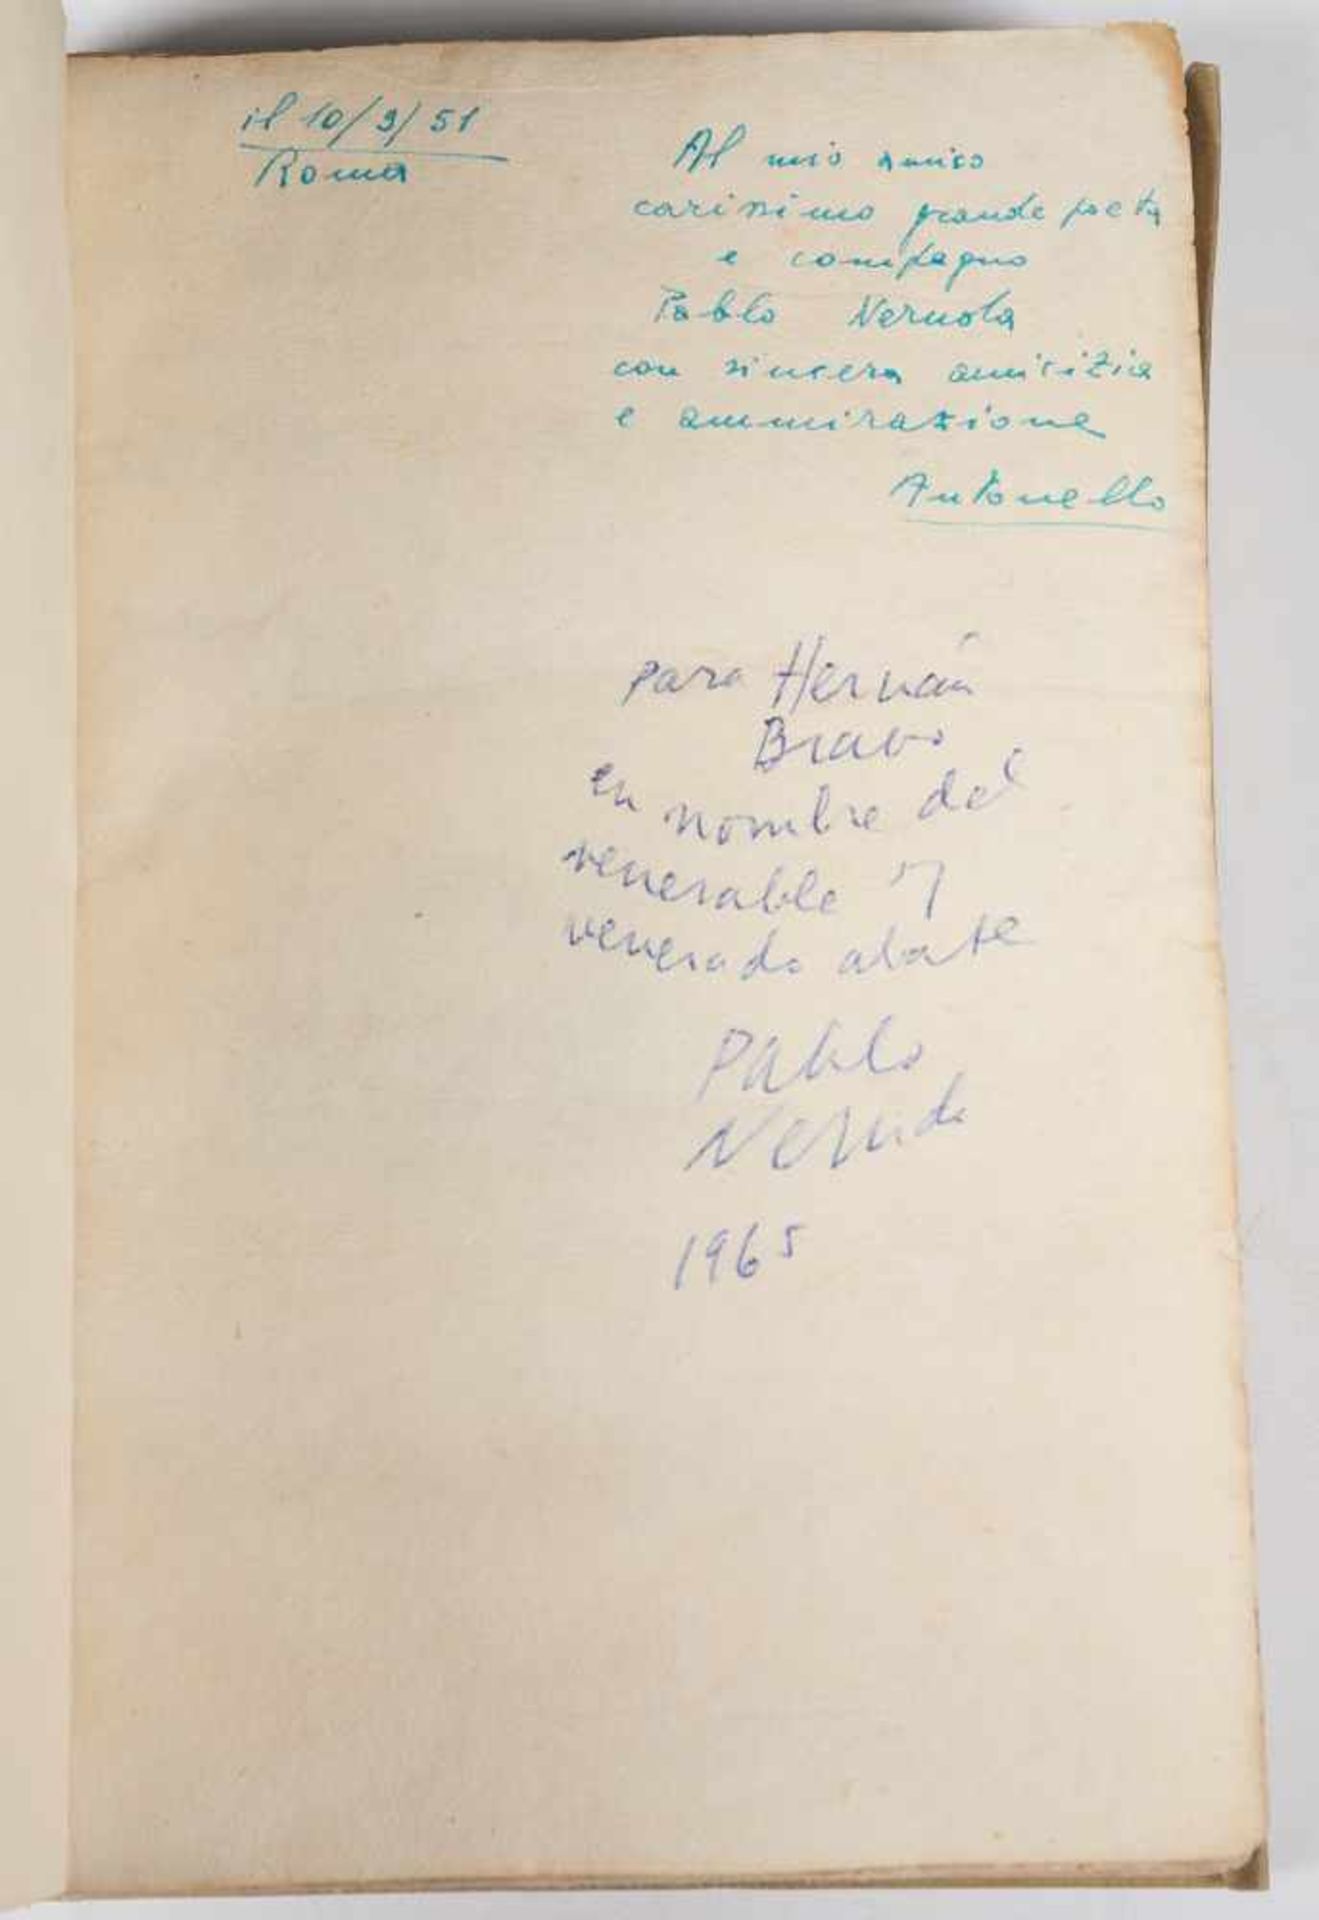 il 10/9/51
Roma
Al mio amico
carissimo grande poeta
e compagno
Pablo Neruda
con sincera amicizia
e ammirazione
Antonello
para Hernán
Bravo
en nombre del
venerable y
venerado abate
Pablo
Neruda
1965